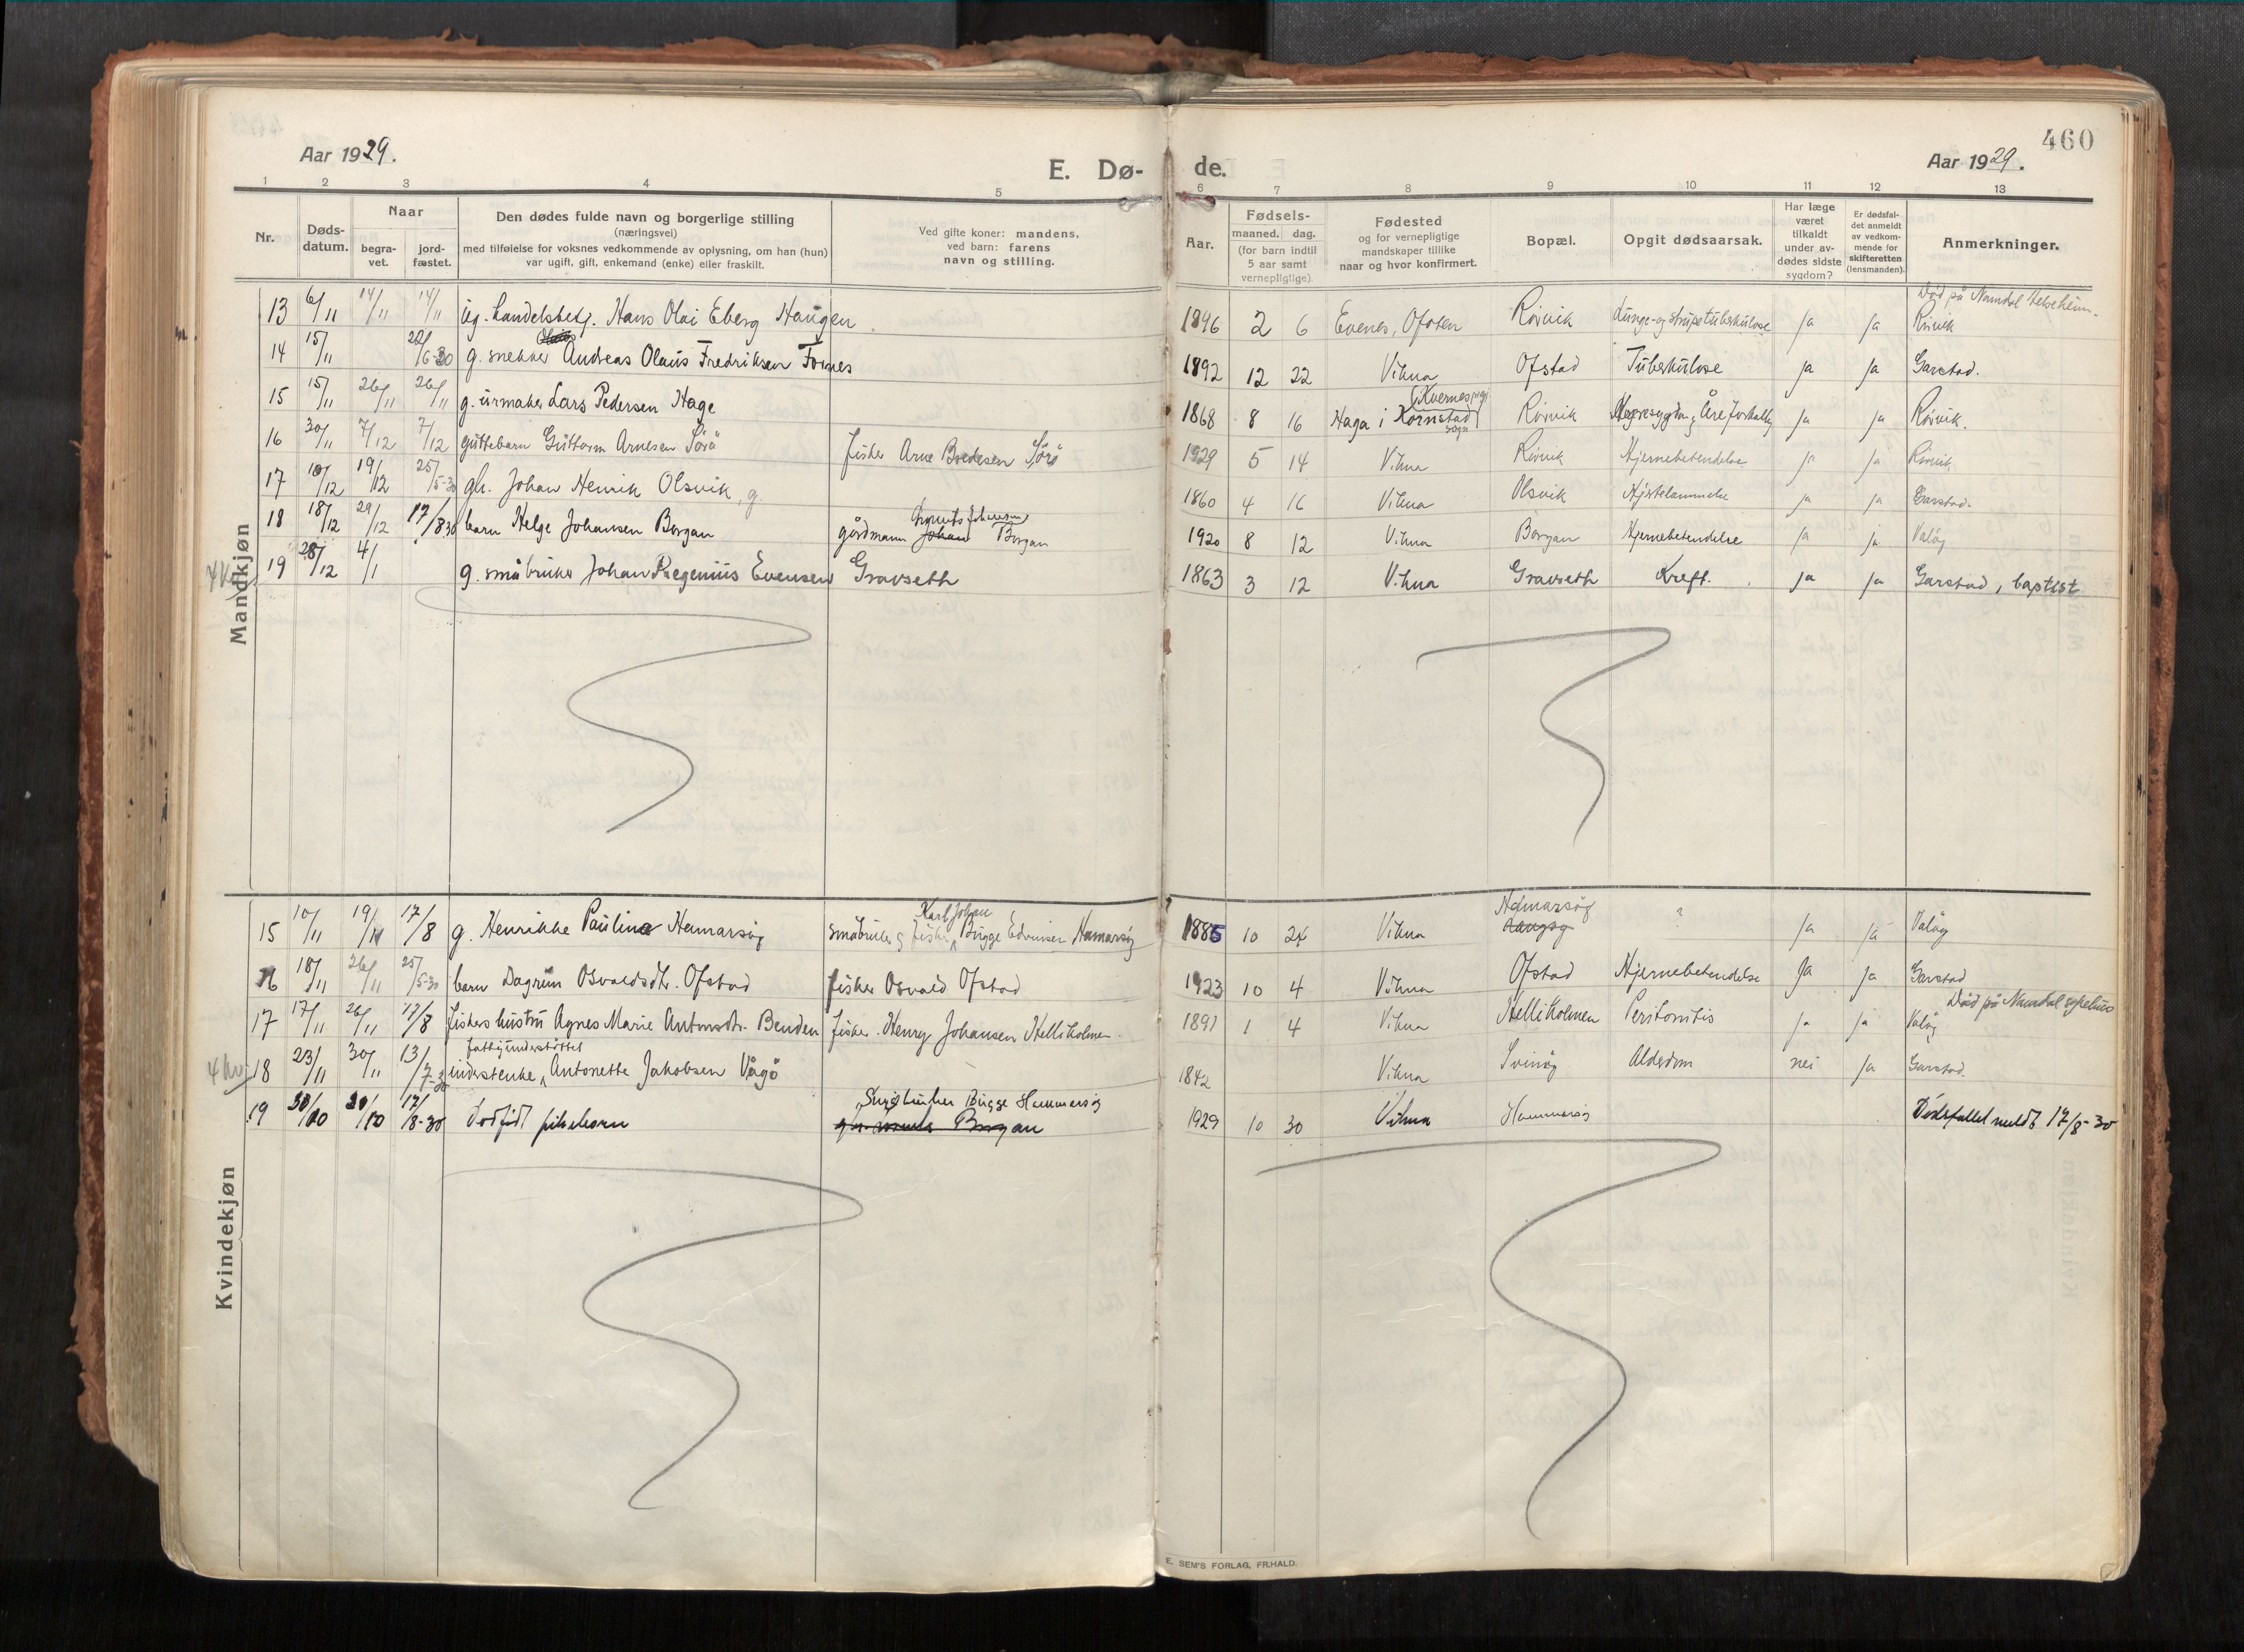 460
Aar 1929.
E. Dø-
de.
Aar 1929.
1 2 3 4 5 6 7 8 9 10 11 12 13
Nr.
Døds-
datum.
Naar
begra-
vet.
jord-
fæstet.
Den dødes fulde navn og borgerlige stilling
(næringsvei)
med tilføielse for voksnes vedkommende av oplysning, om han (hun)
var ugift, gift, enkemand (enke) eller fraskilt.
Ved gifte koner: mandens,
ved barn: farens
navn og stilling.
Aar.
Fødsels-
maaned. dag.
(for barn indtil
5 aar samt
vernepligtige)
Fødested
og for vernepligtige
mandskaper tillike
naar og hvor konfirmert.
Bopæl.
Opgit dødsaarsak.
Har læge
været
tilkaldt
under av-
dødes sidste
sygdom?
Er dødsfal-
det anmeldt
av vedkom-
mende for
skifteretten
(lensmanden).
Anmerkninger.
Mandkjøn
Død på Namdal Helseheim.
13 6/11 14/11 14/11 ug. handelsbetj. Hans Olai Eberg Haugen 1896 2 6 Evenes, Ofoten Rörvik Lunge- og strupetuberkulose ja ja Rörvik
14 15/11 20/6-30 g. snekker Andreas Olaus Fredriksen Fornes 1892 12 22 Vikna Ofstad Tuberkulose ja ja Garstad.
15 15/11 26/11 26/11 g. urmaker Lars Pedersen Hage 1868 8 16 Haga i Kornstad sogn (Kvernes pgj. Rörvik Åreforkalkg ja ja Rörvik.
16 30/11 7/12 7/12 guttebarn Guttorm Arnesen Sörö fisker Arne Bredesen Sörö 1929 5 14 Vikna Rörvik Hjernebetendelse ja ja Rörvik
17 10/12 19/12 25/5-30 gbr. Johan Henrik Olsvik, g. 1860 4 16 Vikna Olsvik Hjertelammelse ja ja Garstad.
18 18/12 29/12 17/8 30 barn Helge Johansen Borgan gårdmann Johan Johansen Borgan 1920 8 12 Vikna Borgan Hjernebetendelse ja ja Valöy
19 28/12 4/1 g. småbruker Johan Regenius Evensen Gravseth 1863 3 12 Vikna Gravseth Kreft. ja ja Garstad, baptist
Kvindekjøn
Karl Johan
15 10/11 19/11 17/8 g. Henrikke Pauline Hamarsöy småbruker og fisker Bugge Edvinsen Hamarsöy 1885 10 24 Vikna Hamarsöy ? ja ja Valöy
16 18/11 26/11 25/5-30 barn Dagrun Osvaldsdtr. Ofstad fisker Osvald Ofstad 1923 10 4 Vikna Ofstad Hjernebetendelse Ja ja Garstad
Död på Namdal sykehus
17 17/11 26/11 17/8 fiskers hustru Agnes Marie Antonsdtr. Benden fisker Henry Johansen Helliholmen. 1891 1 4 Vikna Helliholmen Peritonitis ja ja Valöy
fattigunderstöttet
18 23/11 30/11 13/7-30 inderstenke Antonette Jakobsen Vågö 1842 Vikna Svinöy Alderdom nei ja Garstad.
Småbruker Bugge Hammarsöy
19 30/10 30/10 17/8-30 Dödfödt pikebarn Borgan 1929 10 30 Vikna Hammarsöy Dödsfallet meldt 17/8-30
E. SEM'S FORLAG, FR.HALD.